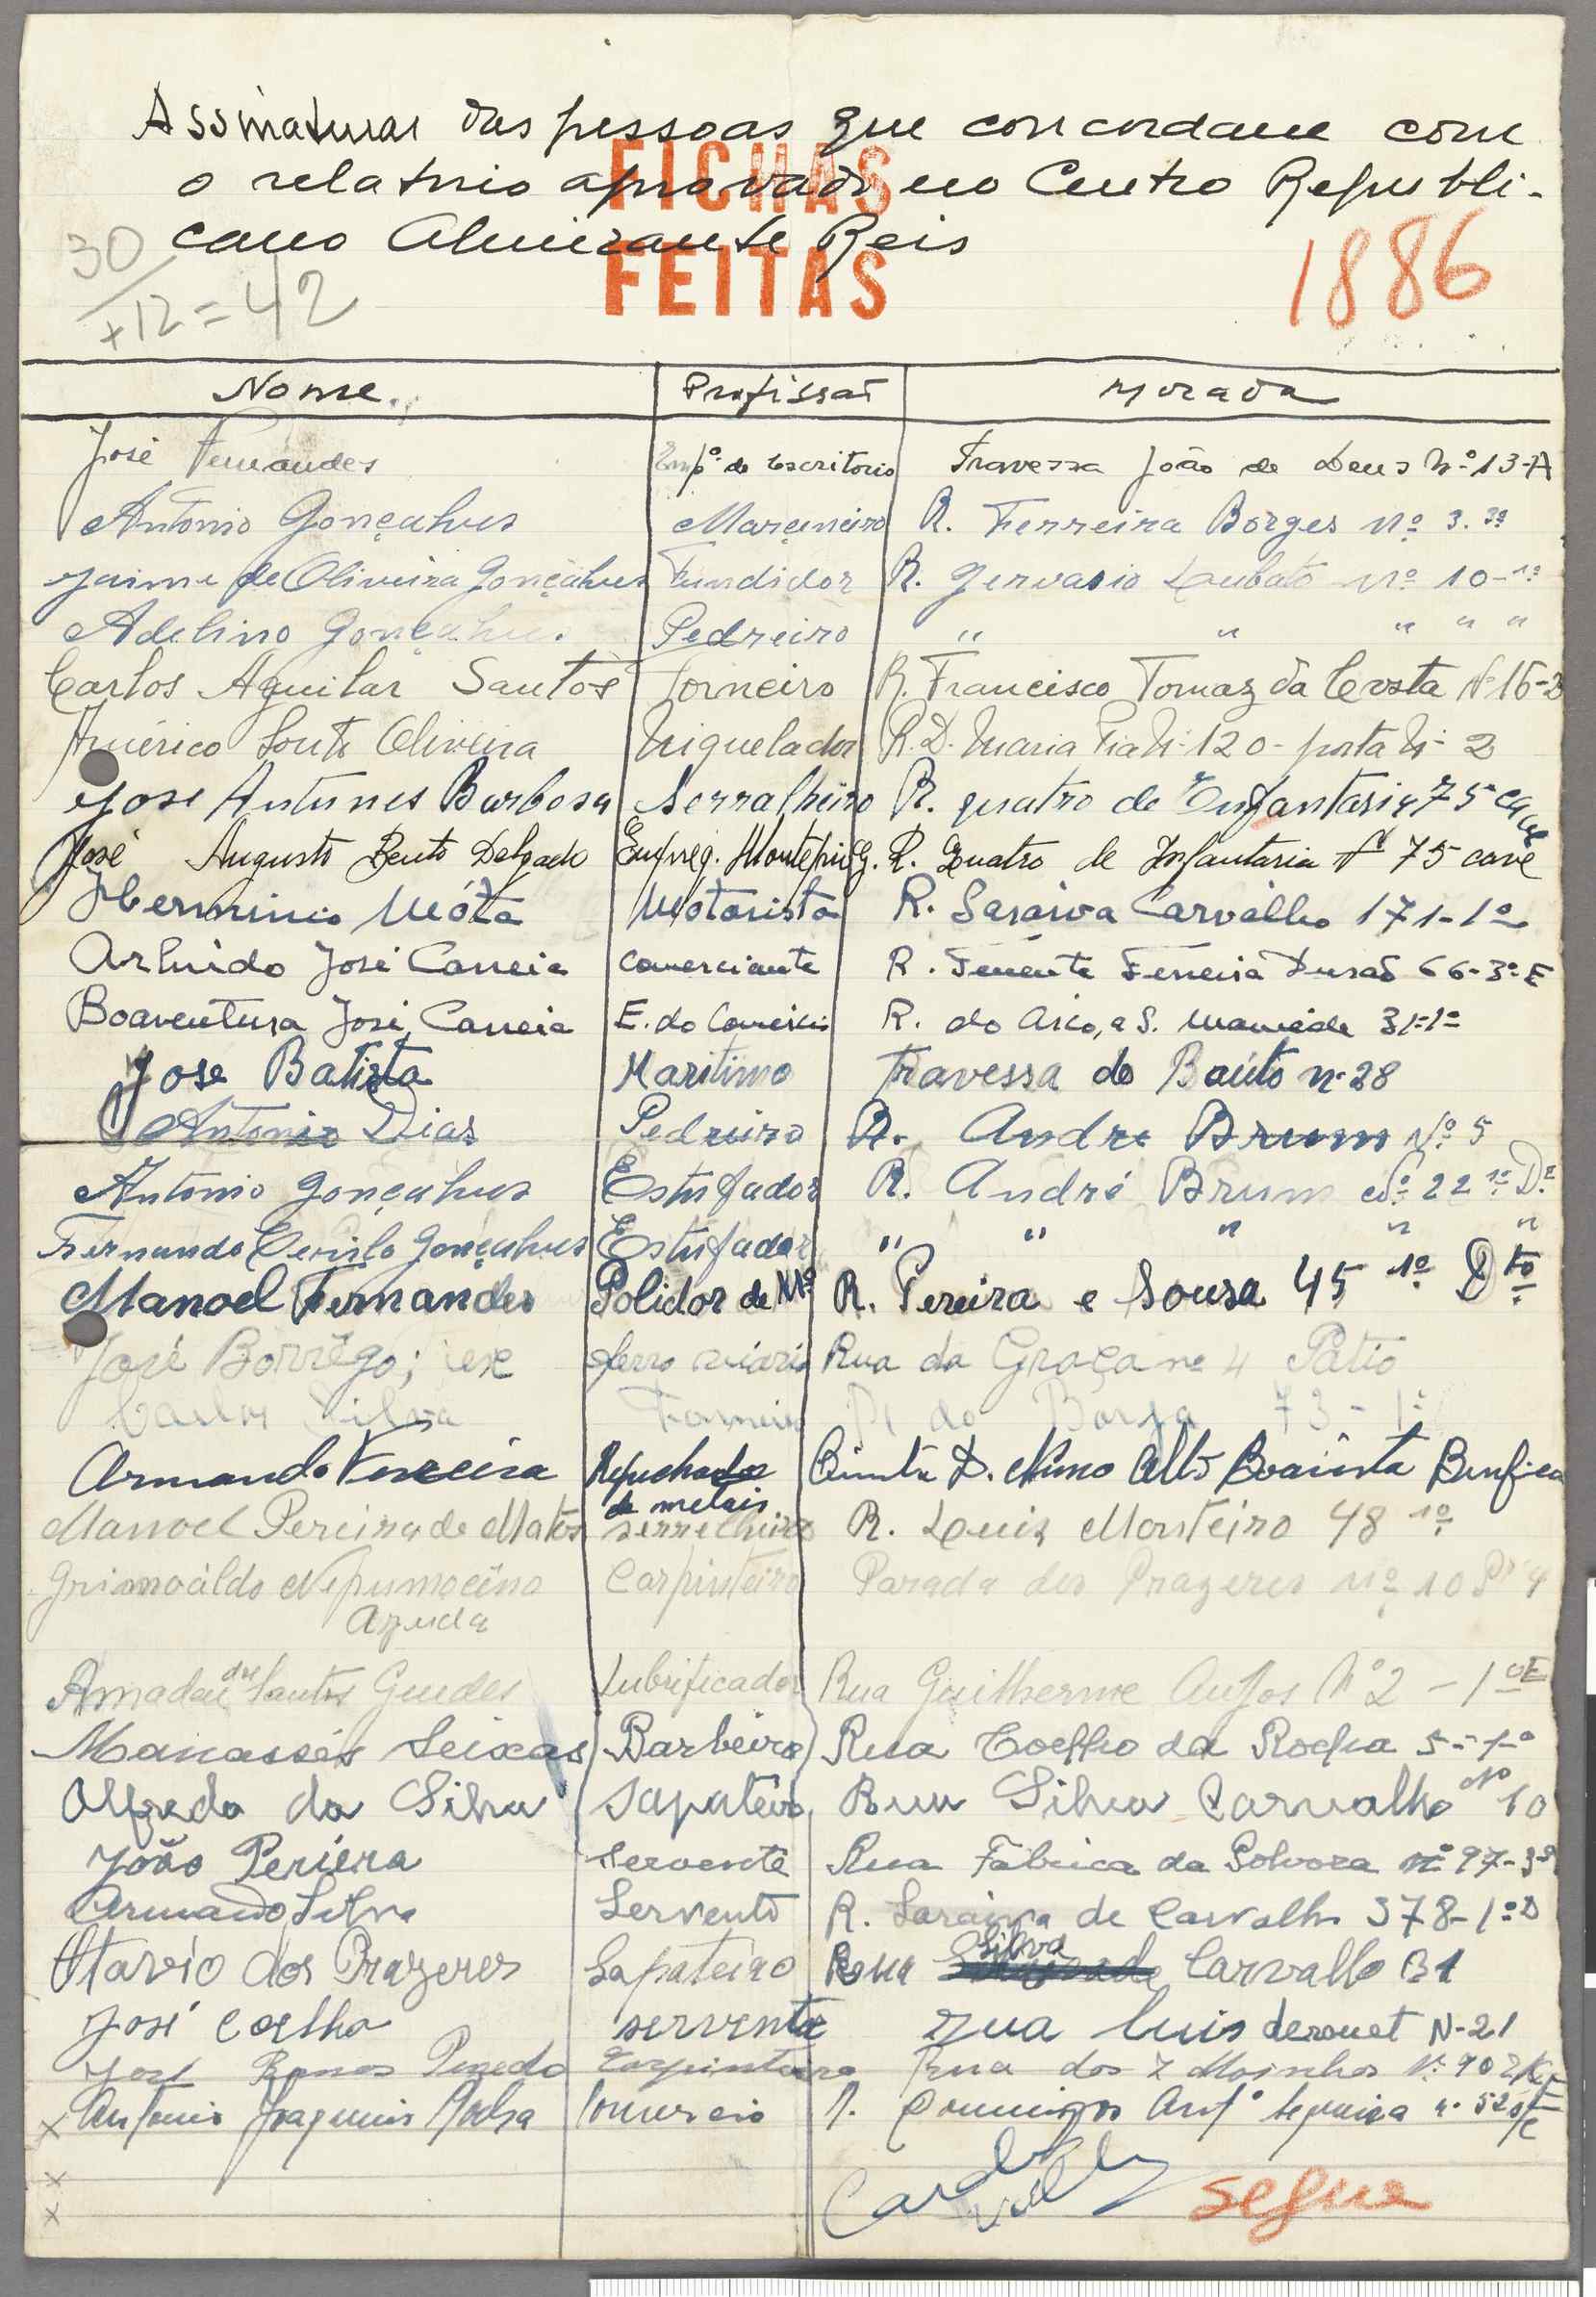 Assinaturas das pessoas que concordam com
o relatorio aprovado no Centro Republi-
cano Almirante Reis
FICHAS
FEITAS
30
+12=42
1886
Nome. Profissão Morada
José Fernandes Empº. de Escritorio Travessa João de Deus Nº 13-A
Antonio Gonçalves Marçineiro R. Ferreira Borges nº 3. 3º
Jaime de Oliveira Gonçalves Fundidor R. Gervasio Loubato nº 10-1º
Adelino Gonçalves. Pedreiro " " " " "
Carlos Aguilar Santos Torneiro R. Francisco Tomaz da Costa Nº 16-3
Américo Souto Oliveira Niquelador R. D. Maria Pia Nº 120 - porta Nº 2
José Antunes Barbosa Serralheiro R. quatro de Enfantaria 75 cave
José Augusto Bento Delgado Empreg. Montepio G. R. Quatro de Infantaria Nº 75 cave
Herminio Móta Motorista R. Saraiva Carvalho 171-1º
Arlindo José Correia Comerciante R. Tenente Ferreira Durão 66-3º E
Boaventura José Correia E. do Comércio R. do Arco, a S. Mamede 31-1º
Jose Batista Maritimo Travessa do Baúto nº 28
Antonio Dias Pedreiro R. Andre Brum Nº 5
Antonio Gonçalves Estufador R. André Brum Nº 22 1º Dº
Fernando Cirilo Gonçalves Estufador " " " " "
Manoel Fernandes Polidor de Mº R. Pereira e Sousa 45 1º Dto
José Borrêgo; ex ferro viario Rua da Graça nº 4 Pátio
Carlos Silva Torneiro R. do Borja 73-1º
Armando Ferreira Repuchador Quinta D. Nuno Alto Boavista Benfica
de metais
Manoel Pereira de Matos serrelheiro R. Luis Monteiro 48 1º
Grimoáldo Nepumocêno Carpinteiro Parada dos Prazeres nº 10
Azuda
Amadeu dos Santos Guedes Lubrificador Rua Guilherme Anjos Nº 2 - 1º E
Manassés Seixas Barbeiro Rua Coelho da Rocha 5-1º
Alfredo da Silva Sapateiro Rua Silva Carvalho Nº 10
João Periera Servente Rua Fábrica da Polvora nº 97-3º
Armando Silva Servente R. Saraiva de Carvalho 378-1º D
Otavio dos Prazeres Sapateiro Rua Silva Carvalho 31
José Coelho servente rua luis derouet N-21
José Ramos Penedo Carpinteiro Rua dos 7 Moinhos Nº 90
x Antonio Joaquim Rocha Comercio R. Domingos Antº Sequeira nº 52
x
x
segue